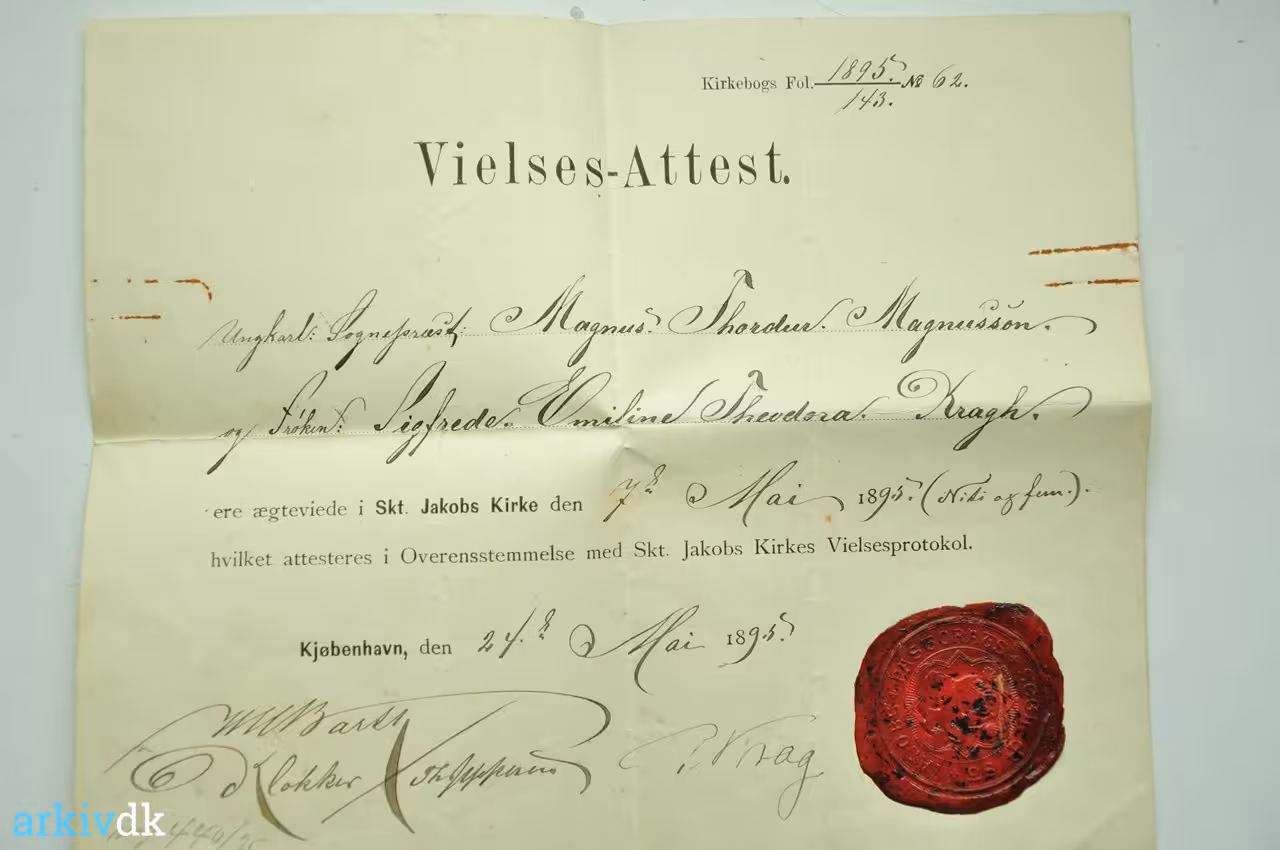 Kirkebogs Fol. 1895./143. № 62.
Vielses-Attest.
Ungkarl: Sognepræst: Magnus Thordur. Magnusson.
og Frøken: Sigfrede. Emiline Theodora. Kragh.
ere ægteviede i Skt. Jakobs Kirke den 7de Mai 1895. (Niti og fem.).
hvilket attesteres i Overensstemmelse med Skt. Jakobs Kirkes Vielsesprotokol.
Kjøbenhavn, den 24.de Mai 1895.
Klokker
P. Krag
arkivdk